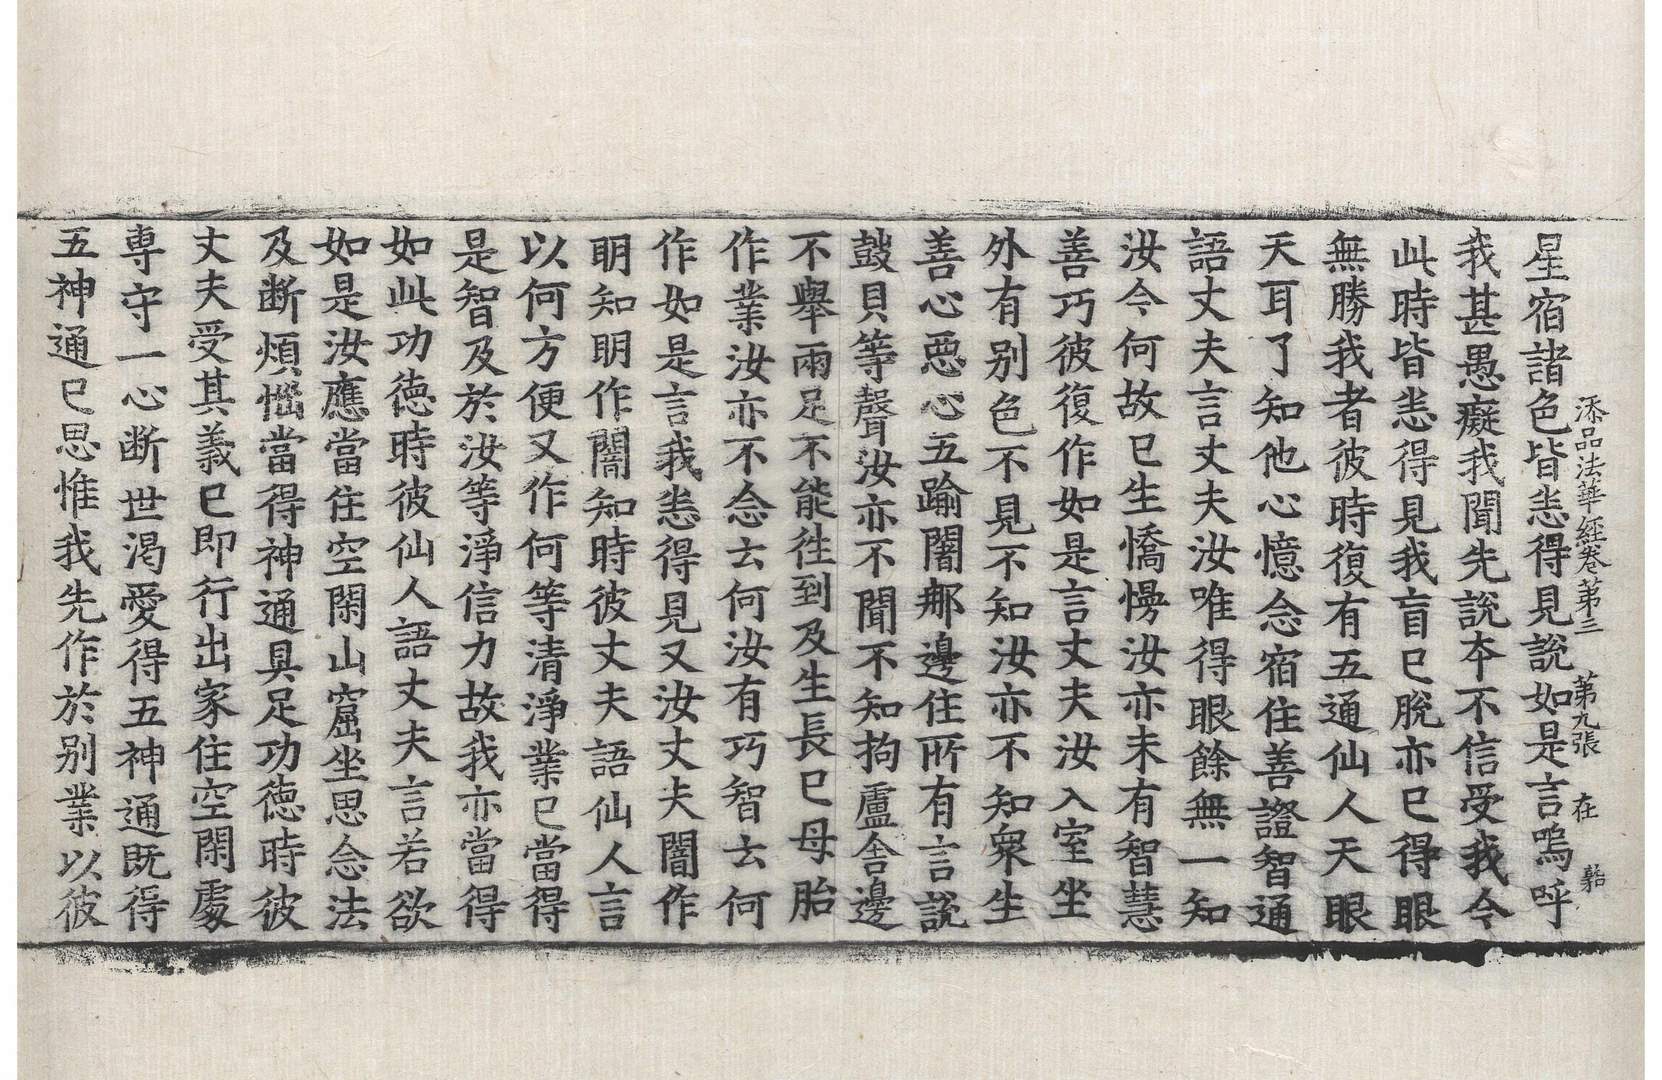 添品法華經卷第三 第九張 在
星宿諸色皆悉得見說如是言嗚呼
我甚愚癡我聞先說夲不信受我今
此時皆悉得見我盲已脫亦已得眼
無勝我者彼時復有五通仙人天眼
天耳了知他心憶念宿住善證智通
語丈夫言丈夫汝唯得眼餘無一知
汝今何故已生憍慢汝亦未有智慧
善巧彼復作如是言丈夫汝入室坐
外有别色不見不知汝亦不知衆生
善心惡心五踰闍那邊住所有言說
鼓貝等聲汝亦不聞不知拘盧舍邊
不舉兩足不能徃到及生長已母胎
作業汝亦不念去何汝有巧智去何
作如是言我悉得見又汝丈夫闇作
明知明作闇知時彼丈夫語仙人言
以何方便又作何等清淨業已當得
是智及於汝等淨信力故我亦當得
如此功德時彼仙人語丈夫言若欲
如是汝應當住空閑山窟坐思念法
及断煩惱當得神通具足功德時彼
丈夫受其義已即行出家住空閑處
専守一心断世渴愛得五神通既得
五神通已思惟我先作於别業以彼